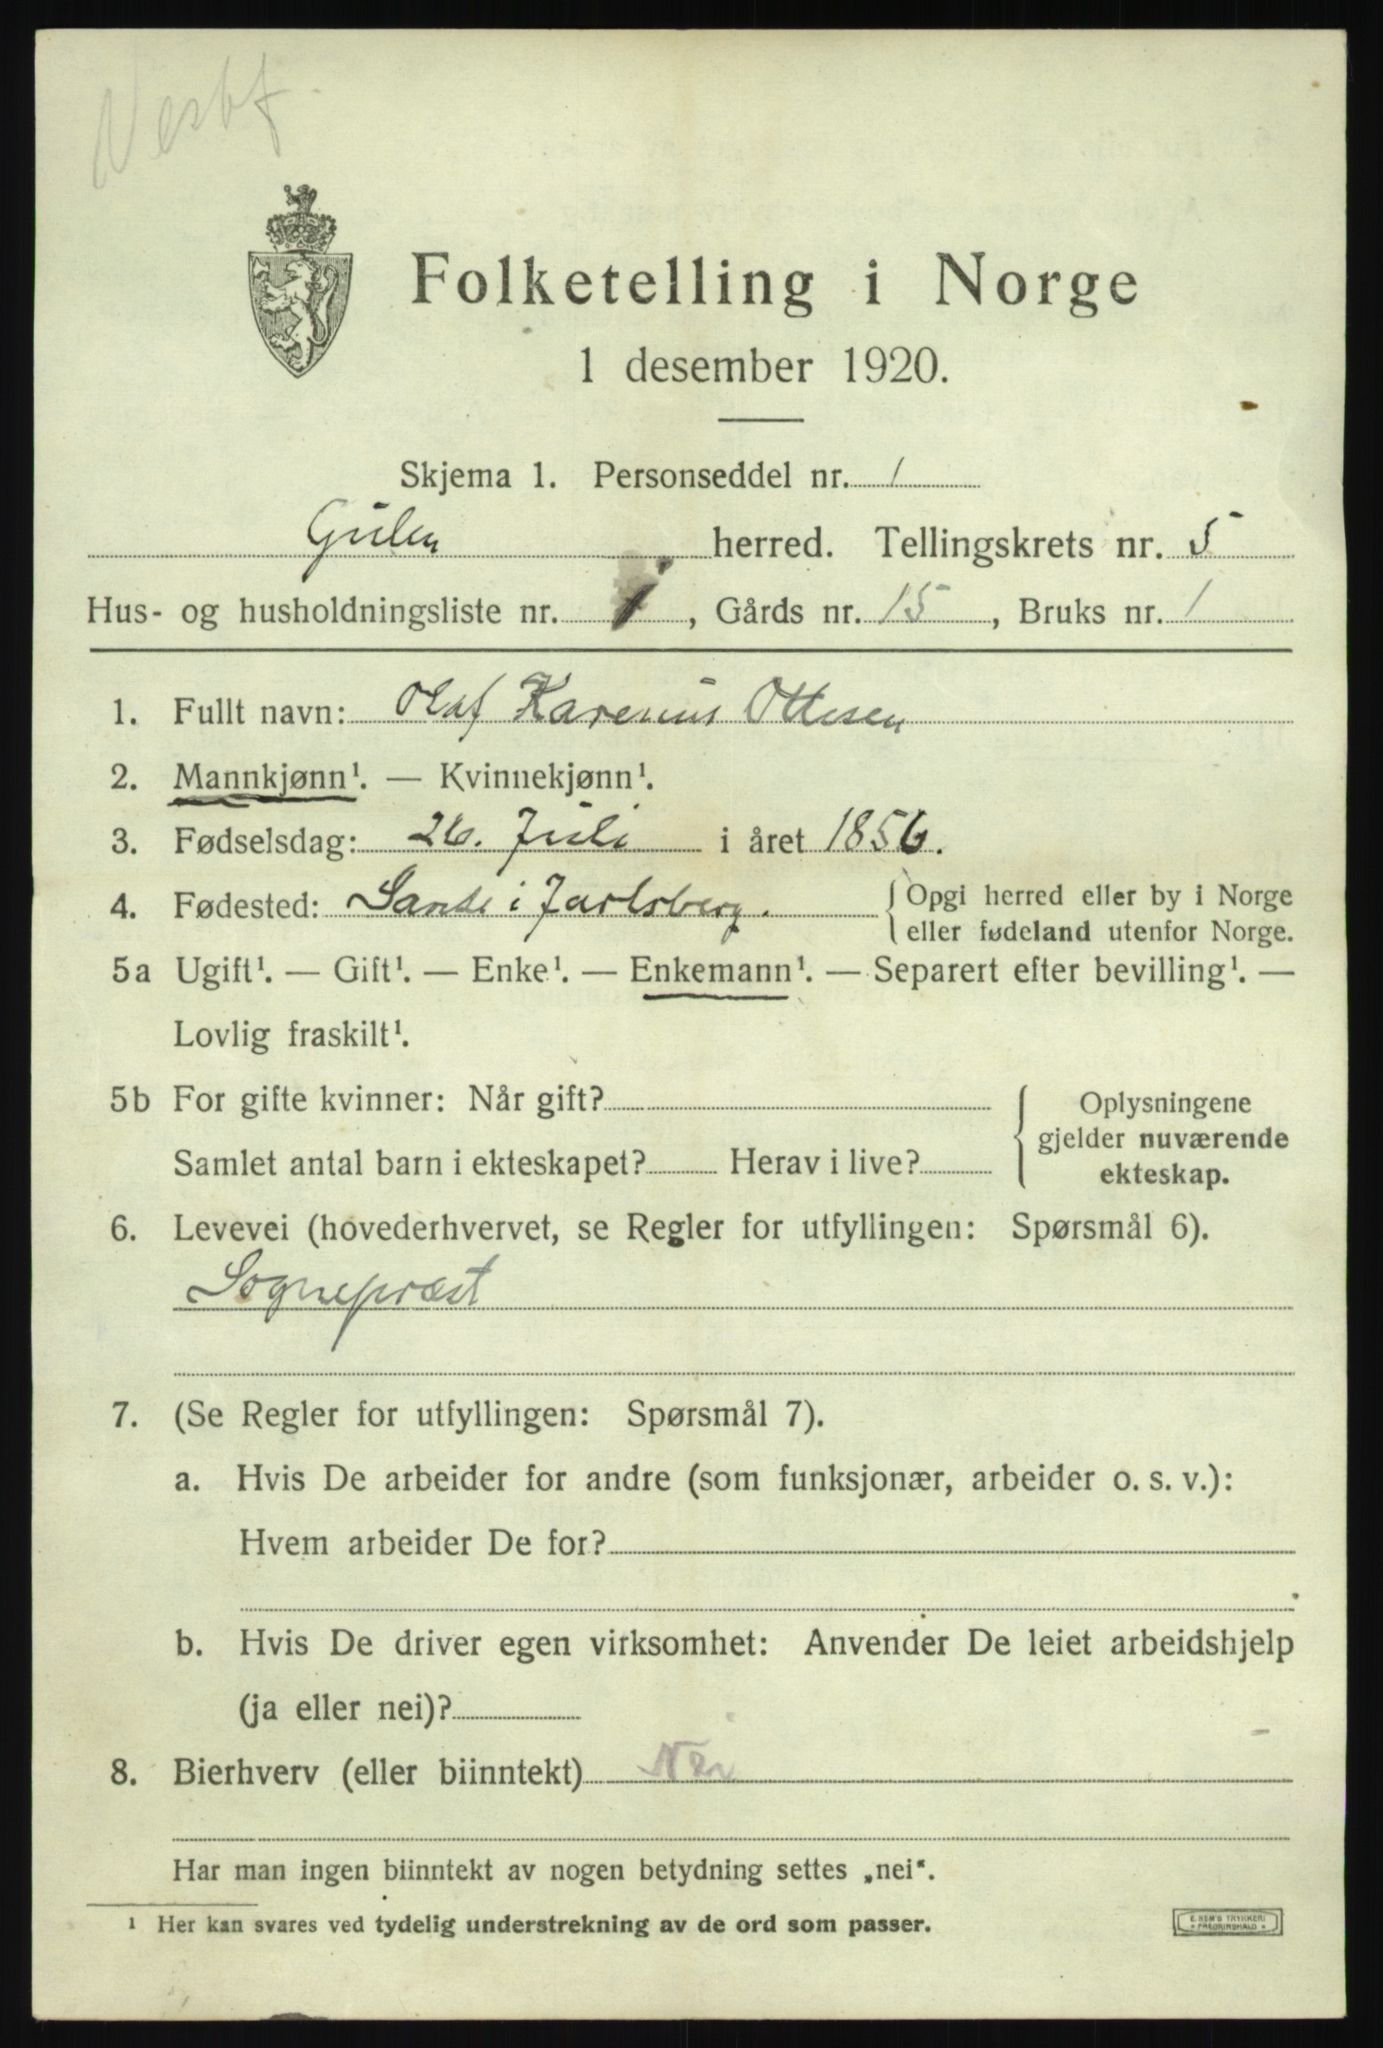 Folketelling i Norge
1 desember 1920.
Skjema 1. Personseddel nr. 1
Gulen herred. Tellingskrets nr. 5
Hus- og husholdningsliste nr. 1, Gårds nr. 15, Bruks nr. 1
1. Fullt navn: Olaf Karenius Ottesen
2. Mannkjønn¹. — Kvinnekjønn¹.
3. Fødselsdag: 26. Juli i året 1856.
4. Fødested: Sande i Jarlsberg. { Opgi herred eller by i Norge
eller fødeland utenfor Norge.
5a Ugift¹. — Gift¹. — Enke¹. — Enkemann¹. — Separert efter bevilling¹. —
Lovlig fraskilt¹.
5b For gifte kvinner: Når gift? { Oplysningene
gjelder nuværende
Samlet antal barn i ekteskapet? Herav i live?
ekteskap.
6. Levevei (hovederhvervet, se Regler for utfyllingen: Spørsmål 6).
Sogneprest
7. (Se Regler for utfyllingen: Spørsmål 7).
a. Hvis De arbeider for andre (som funksjonær, arbeider o. s. v.):
Hvem arbeider De for?
b. Hvis De driver egen virksomhet: Anvender De leiet arbeidshjelp
(ja eller nei)?
8. Bierhverv (eller biinntekt) Nei
Har man ingen biinntekt av nogen betydning settes „nei“.
¹ Her kan svares ved tydelig understrekning av de ord som passer.